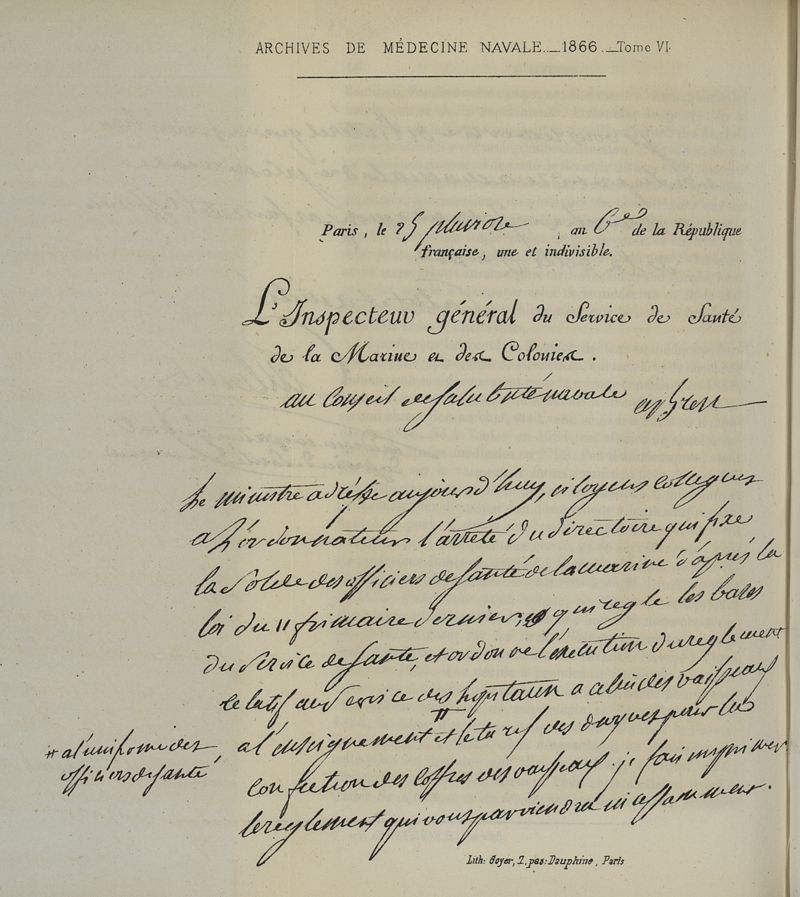 ARCHIVES DE MÉDECINE NAVALE. — 1866. — Tome VI.
Paris, le 25 pluviose, an 6e de la République
française, une et indivisible.
L'Inspecteur général du Service de Santé
de la Marine et des Colonies.
au Conseil de salubrité navale à Brest
Le ministre adresse aujourd'huy, citoyens collegues
a L'ordonnateur l'arrêté du directoire qui fixe
la solde des officiers de santé de la marine d'après la
loi du 11 frimaire dernier, qui regle les bases
du service de santé, et ordonne l'execution du reglement
relatif au service des hopitaux a celui des vaisseaux
a l'enseignement # et le tarif des drogues pour la
# a l'uniforme des
officiers de santé,
confection des coffres des vaisseaux. je fais imprimer
le reglement qui vous parviendra incessamment.
Lith: Goyer, 7, pas: Dauphine, Paris